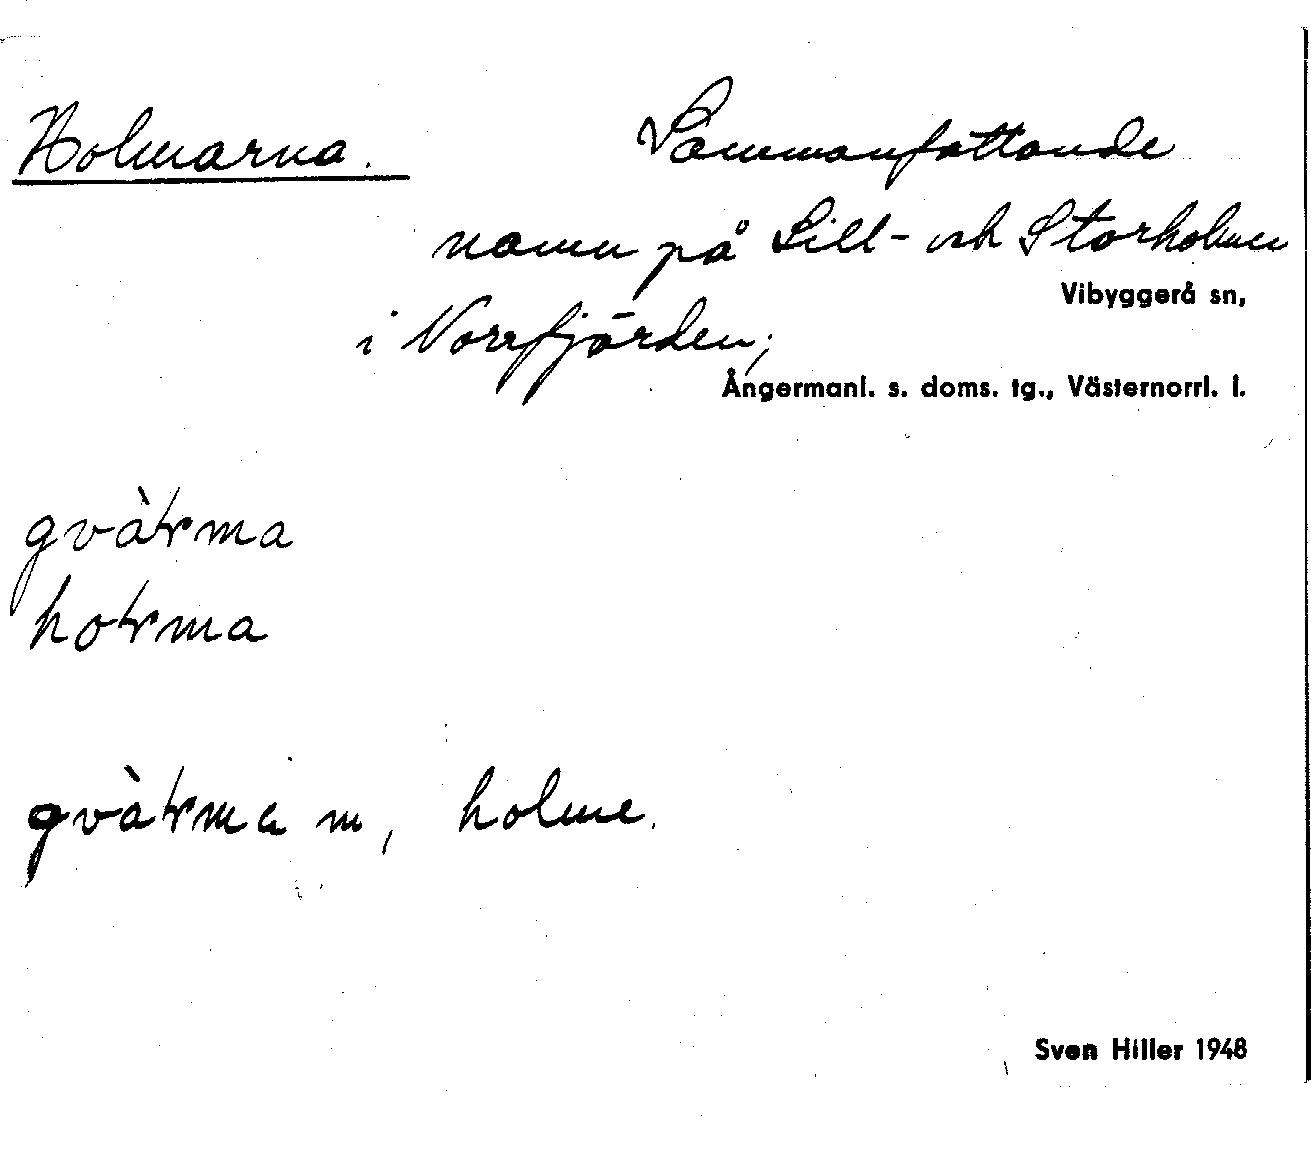 Holmarna. Sammanfattande
namn på Lill- och Storholmen
Vibyggerå sn,
i Norrfjärden;
Ångermanl. s. doms. tg., Västernorrl. l.
holme.
Sven Hiller 1948